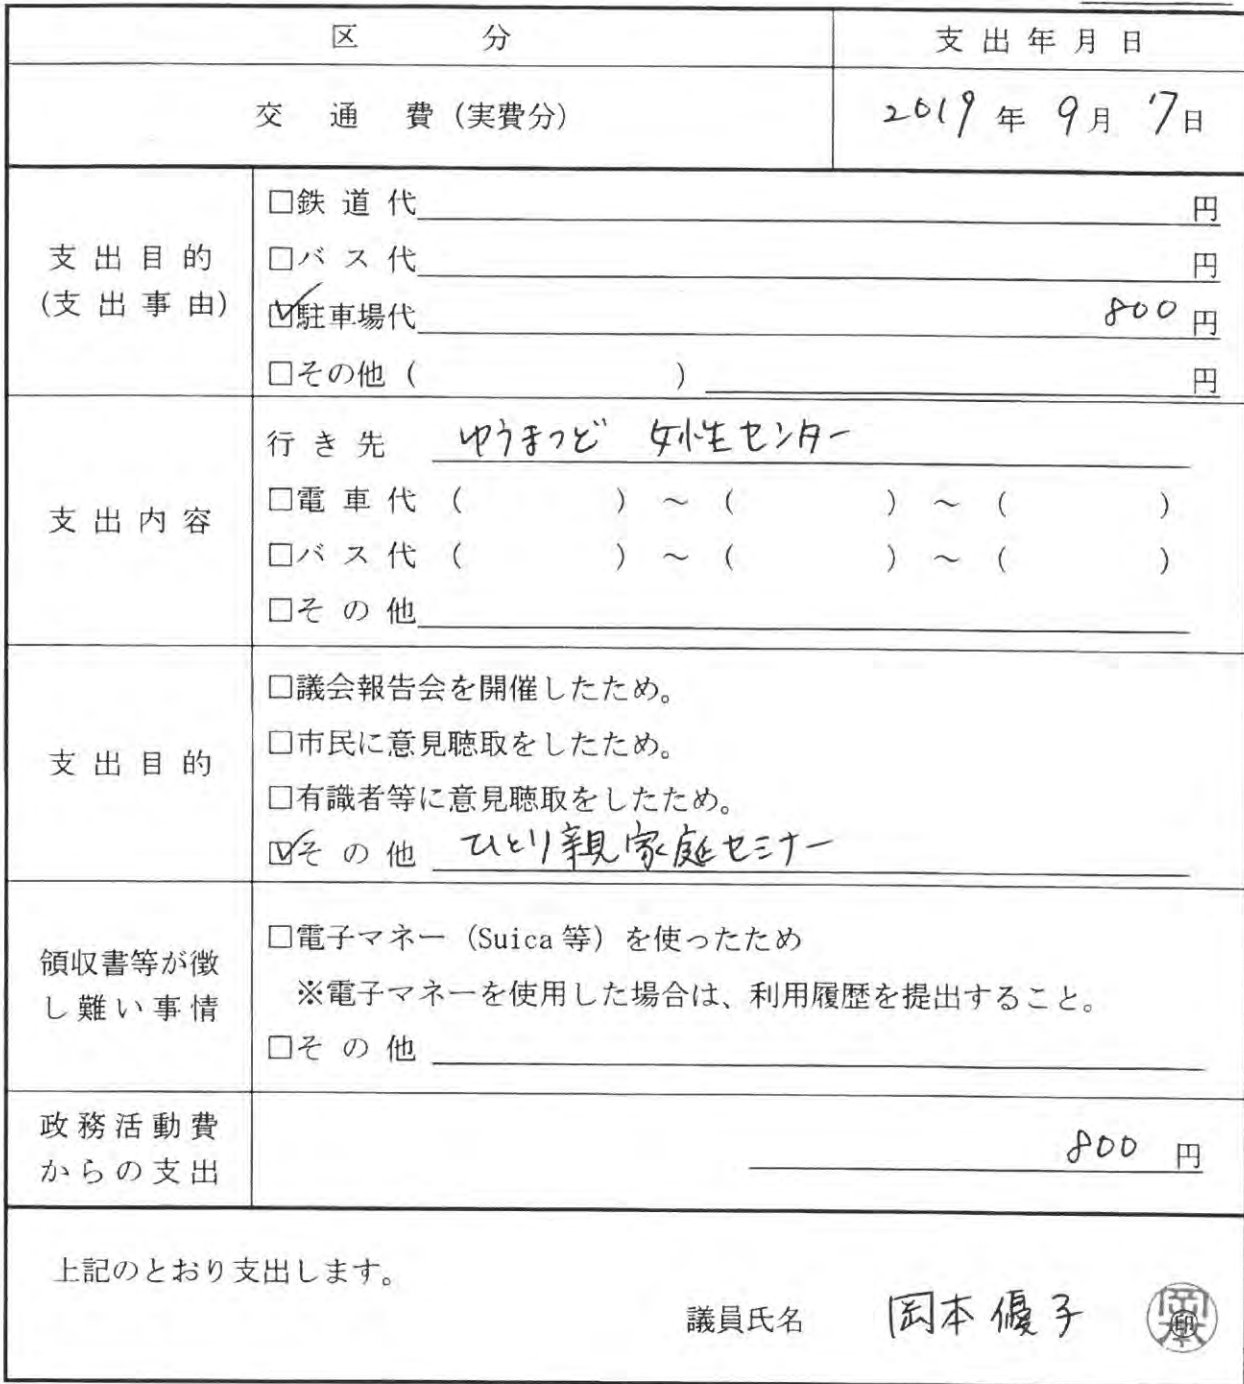 区 分 支出年月日
交 通 費（実費分） 2019 年 9月 7日
支出目的
(支出事由)
□鉄 道 代 円
□バ ス 代 円
☑駐車場代 800 円
□その他（ ） 円
支出内容
行 き 先 ゆうまつど 女性センター
□電 車 代 （ ） ～ （ ） ～ （ ）
□バ ス 代 （ ） ～ （ ） ～ （ ）
□そ の 他
支出目的
□議会報告会を開催したため。
□市民に意見聴取をしたため。
□有識者等に意見聴取をしたため。
☑そ の 他 ひとり親家庭セミナー
領収書等が徴
し難い事情
□電子マネー（Suica 等）を使ったため
※電子マネーを使用した場合は、利用履歴を提出すること。
□そ の 他
政務活動費
からの支出
800 円
上記のとおり支出します。
議員氏名 岡本優子 ㊞ 岡本